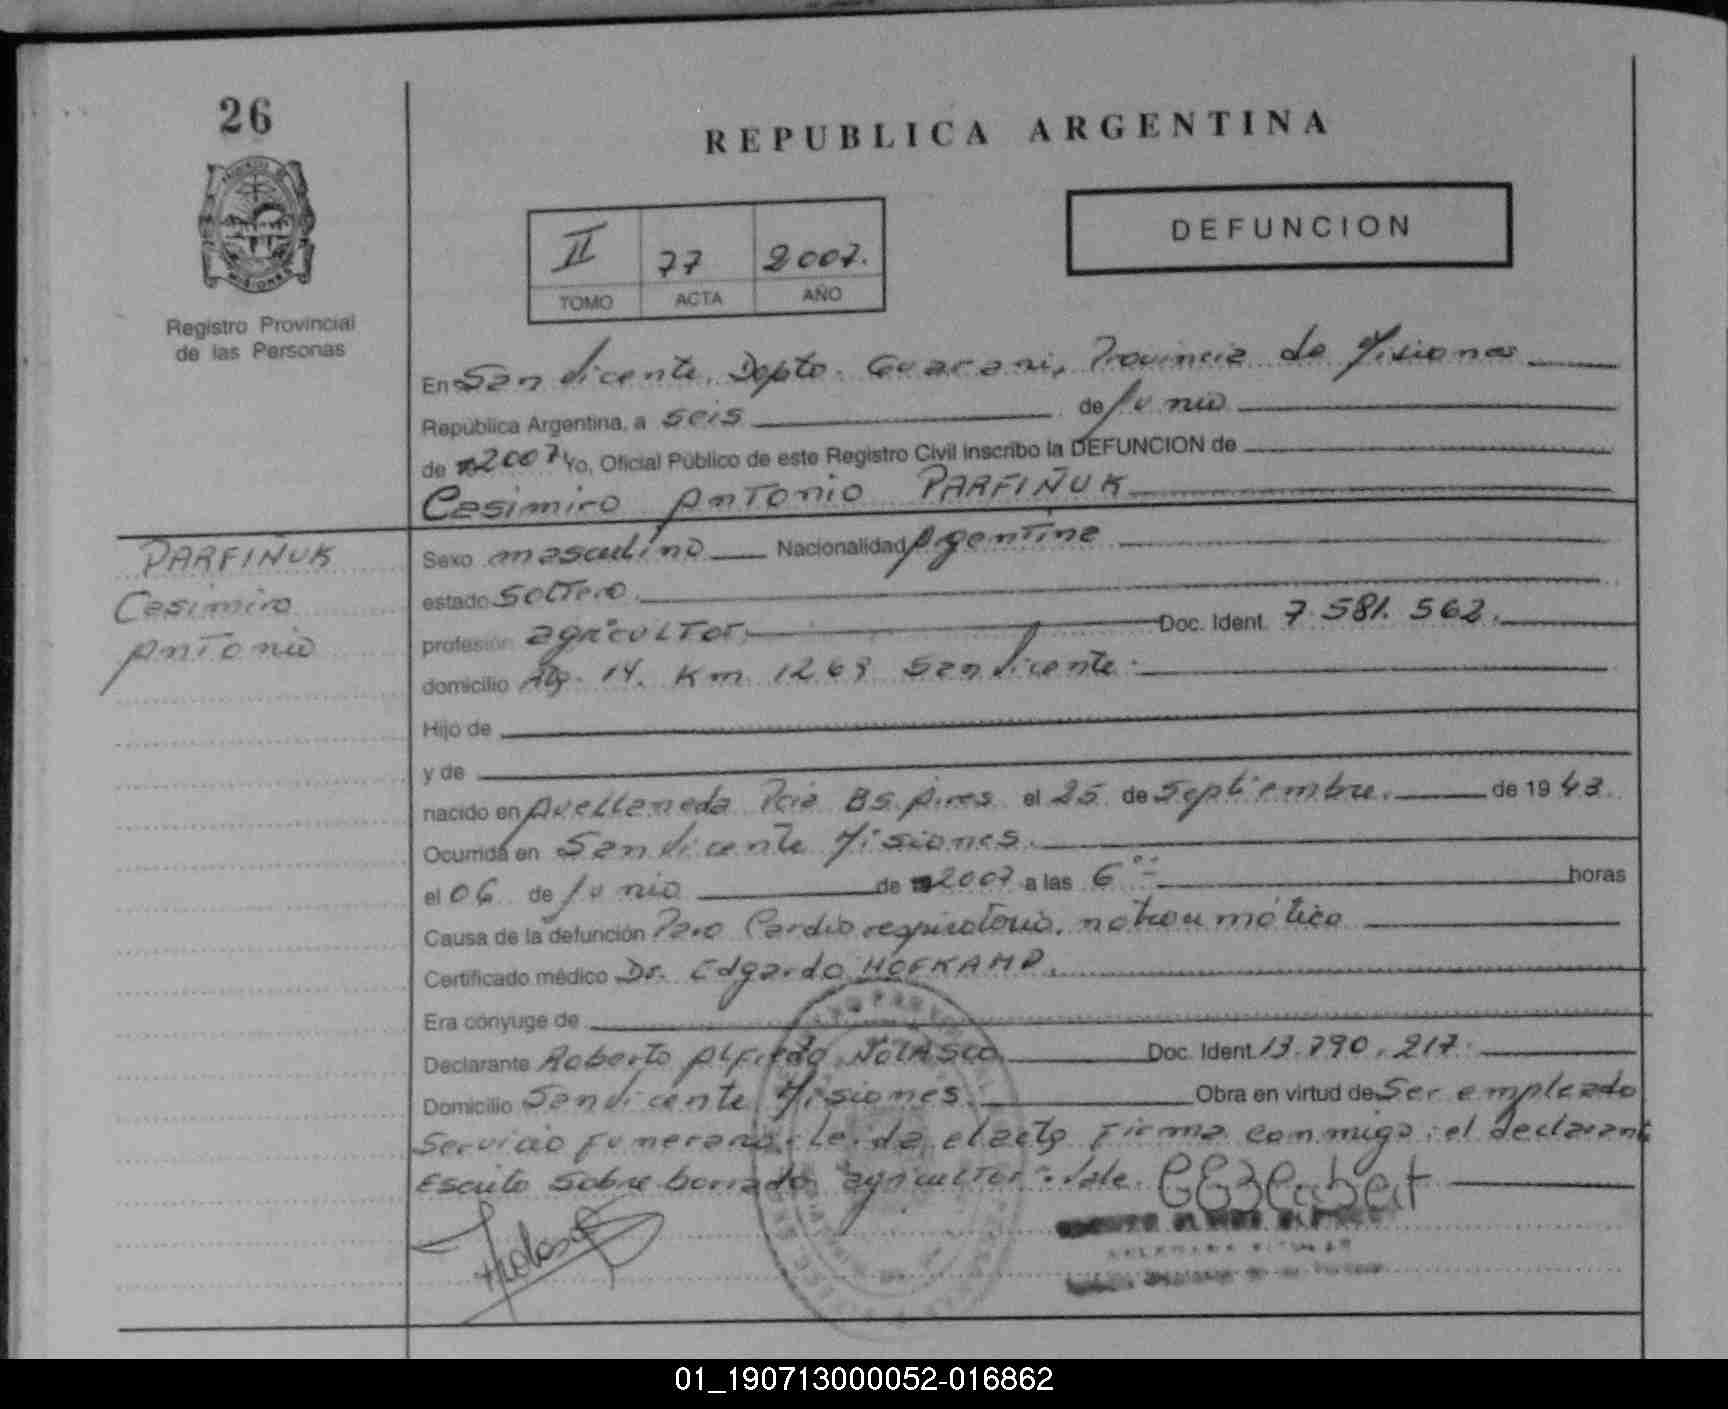 26
REPUBLICA ARGENTINA
DEFUNCION
II 77 2007.
TOMO ACTA AÑO
MISIONES
Registro Provincial
de las Personas
En San Vicente, Depto. Guarani, Provincia de Misiones
República Argentina, a seis de Junio
de 2007 Yo, Oficial Público de este Registro Civil inscribo la DEFUNCION de
Casimiro Antonio PARFIÑUK
PARFIÑUK
Casimiro
Antonio
Sexo masculino Nacionalidad Argentina
estado Soltero
profesión agricultor Doc. Ident. 7.581.562.
domicilio Km 1263 San Vicente.
Hijo de
y de
nacido en Avellaneda Pcia Bs. Aires el 25 de Septiembre de 1943.
Ocurrida en San Vicente Misiones
el 06 de Junio de 2007 a las 6 horas
Causa de la defunción Paro Cardio respiratorio, no traumático
Certificado médico Dr. Edgardo HOFKAMP.
Era cónyuge de
Declarante Roberto Alfredo NOLASCO Doc. Ident. 13.790.217.
Domicilio San Vicente Misiones. Obra en virtud de Ser empleado
Servicio Funerario. Leida el acta Firma conmigo el declarante
Escrito sobre borrado "agricultor" Vale.
01_190713000052-016862